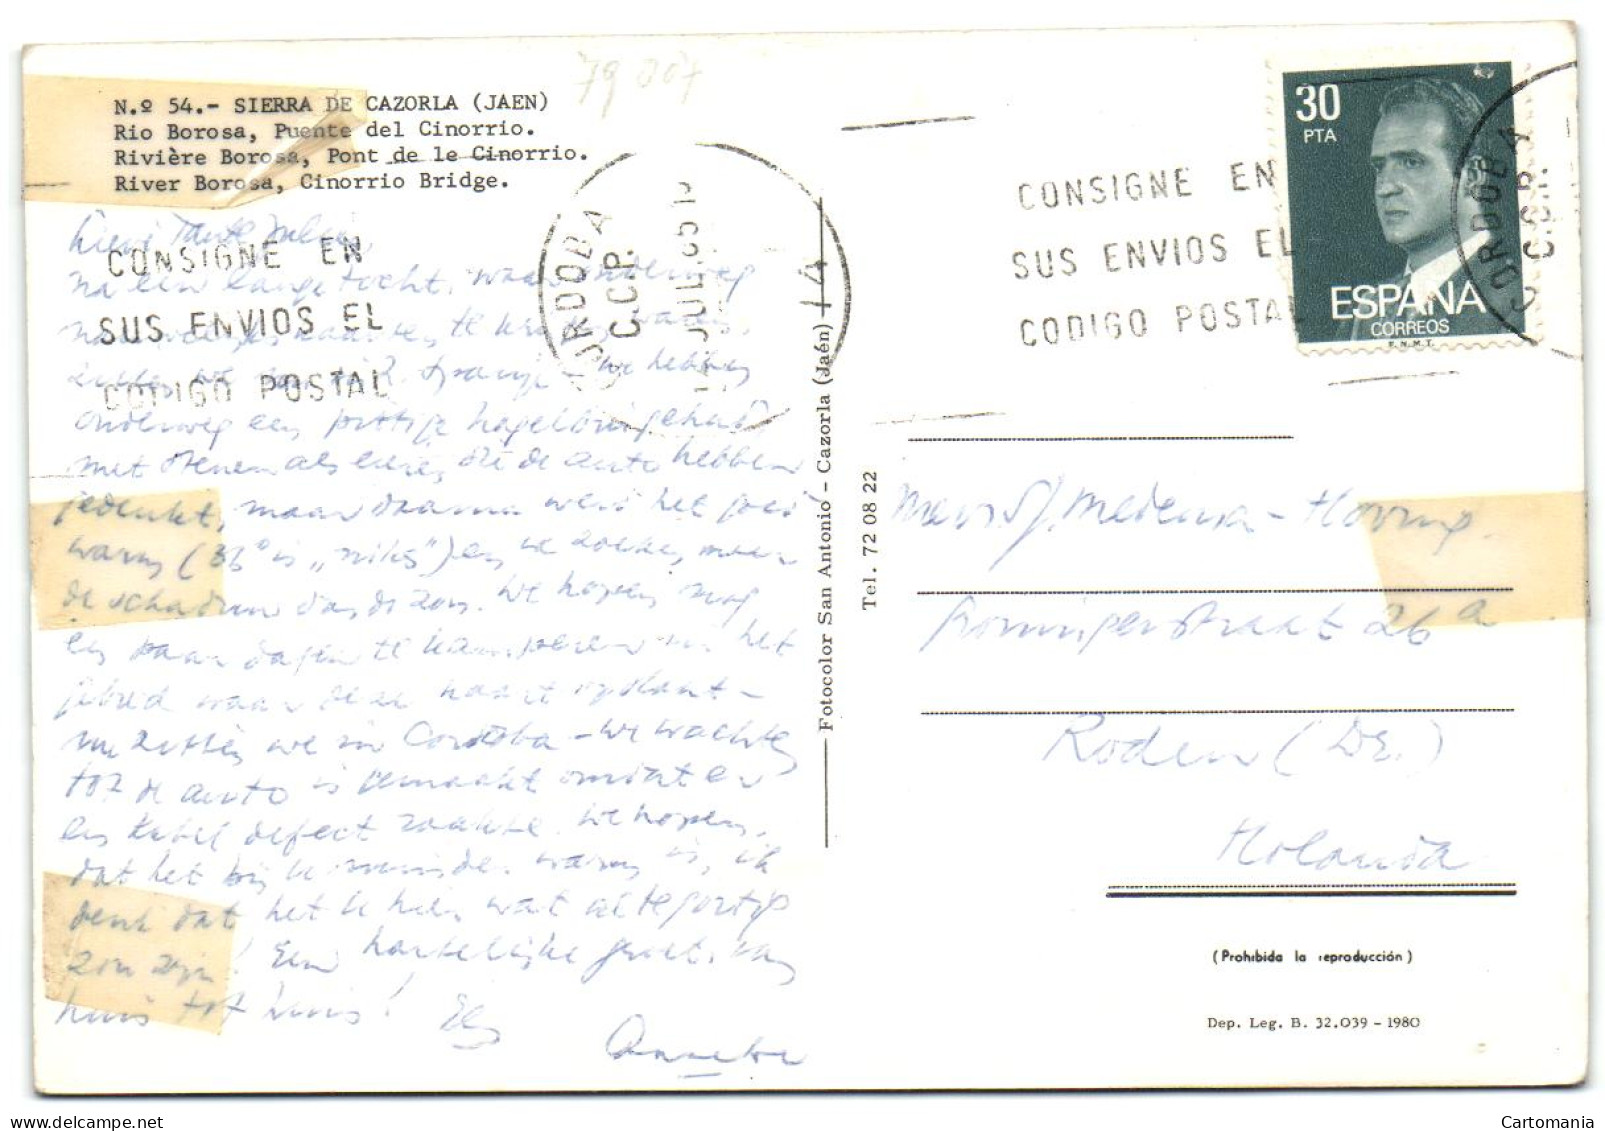 79007
N.º 54.- SIERRA DE CAZORLA (JAEN)
Rio Borosa, Puente del Cinorrio.
Rivière Borosa, Pont de le Cinorrio.
River Borosa, Cinorrio Bridge.
CONSIGNE EN
SUS ENVIOS EL
CODIGO POSTAL
CORDOBA
C.C.P.
JUL 85
Lieve Tante
na een lange tocht, waar onderweg
te
we hebben
onderweg een pittige hagelbui gehad,
met stenen als eieren die de auto hebben
gedeukt, maar daarna werd het goed
warm (36° is „niks”) en we zoeken meer
de schaduw dan de zon. We hopen nog
een paar dagen te kamperen in het
gebied waar deze kaart
nu zitten we in Cordoba - we wachten
tot de auto is gemaakt omdat er
een kabel defect raakte. We hopen,
dat het bij U minder warm is, ik
denk dat het U hier wat al te gortig
zou zijn! Een hartelijke groet, van
huis tot huis!
Fotocolor San Antonio - Cazorla (Jaén)
Tel. 72 08 22
CONSIGNE EN
SUS ENVIOS EL
CODIGO POSTAL
30
PTA
ESPAÑA
CORREOS
F.N.M.T.
CORDOBA
C.C.P.
Groningerstraat 26a
Roden (Dr.)
Holanda
(Prohibida la reproducción)
Dep. Leg. B. 32.039 - 1980
Cartomania